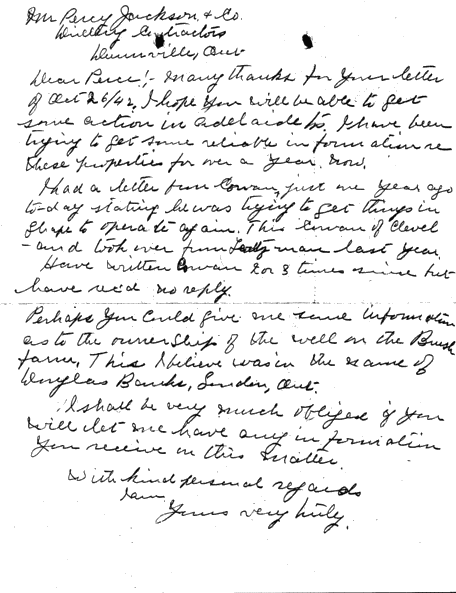 Mr Percy Jackson, & Co.
Drilling Contractors
Dunnville, Ont
Dear Perce! - Many thanks for your letter
of Oct 26/42, I hope you will be able to get
some action in Adelaide Tp. I have been
trying to get some reliable information re
these properties for over a year now.
I had a letter from Cowan, just one year ago
to-day stating he was trying to get things in
shape to operate again. This Cowan of Clevel
- and took over from man last year.
Have written Cowan 2 or 3 times since but
have rec'd no reply.
Perhaps you could give me some information
as to the ownership of the well on the Brush
farm, This I believe was in the name of
Douglas Banks, London, Ont.
I shall be very much obliged if you
will let me have any information
you receive on this matter.
With kind personal regards
I am
Yours very truly.